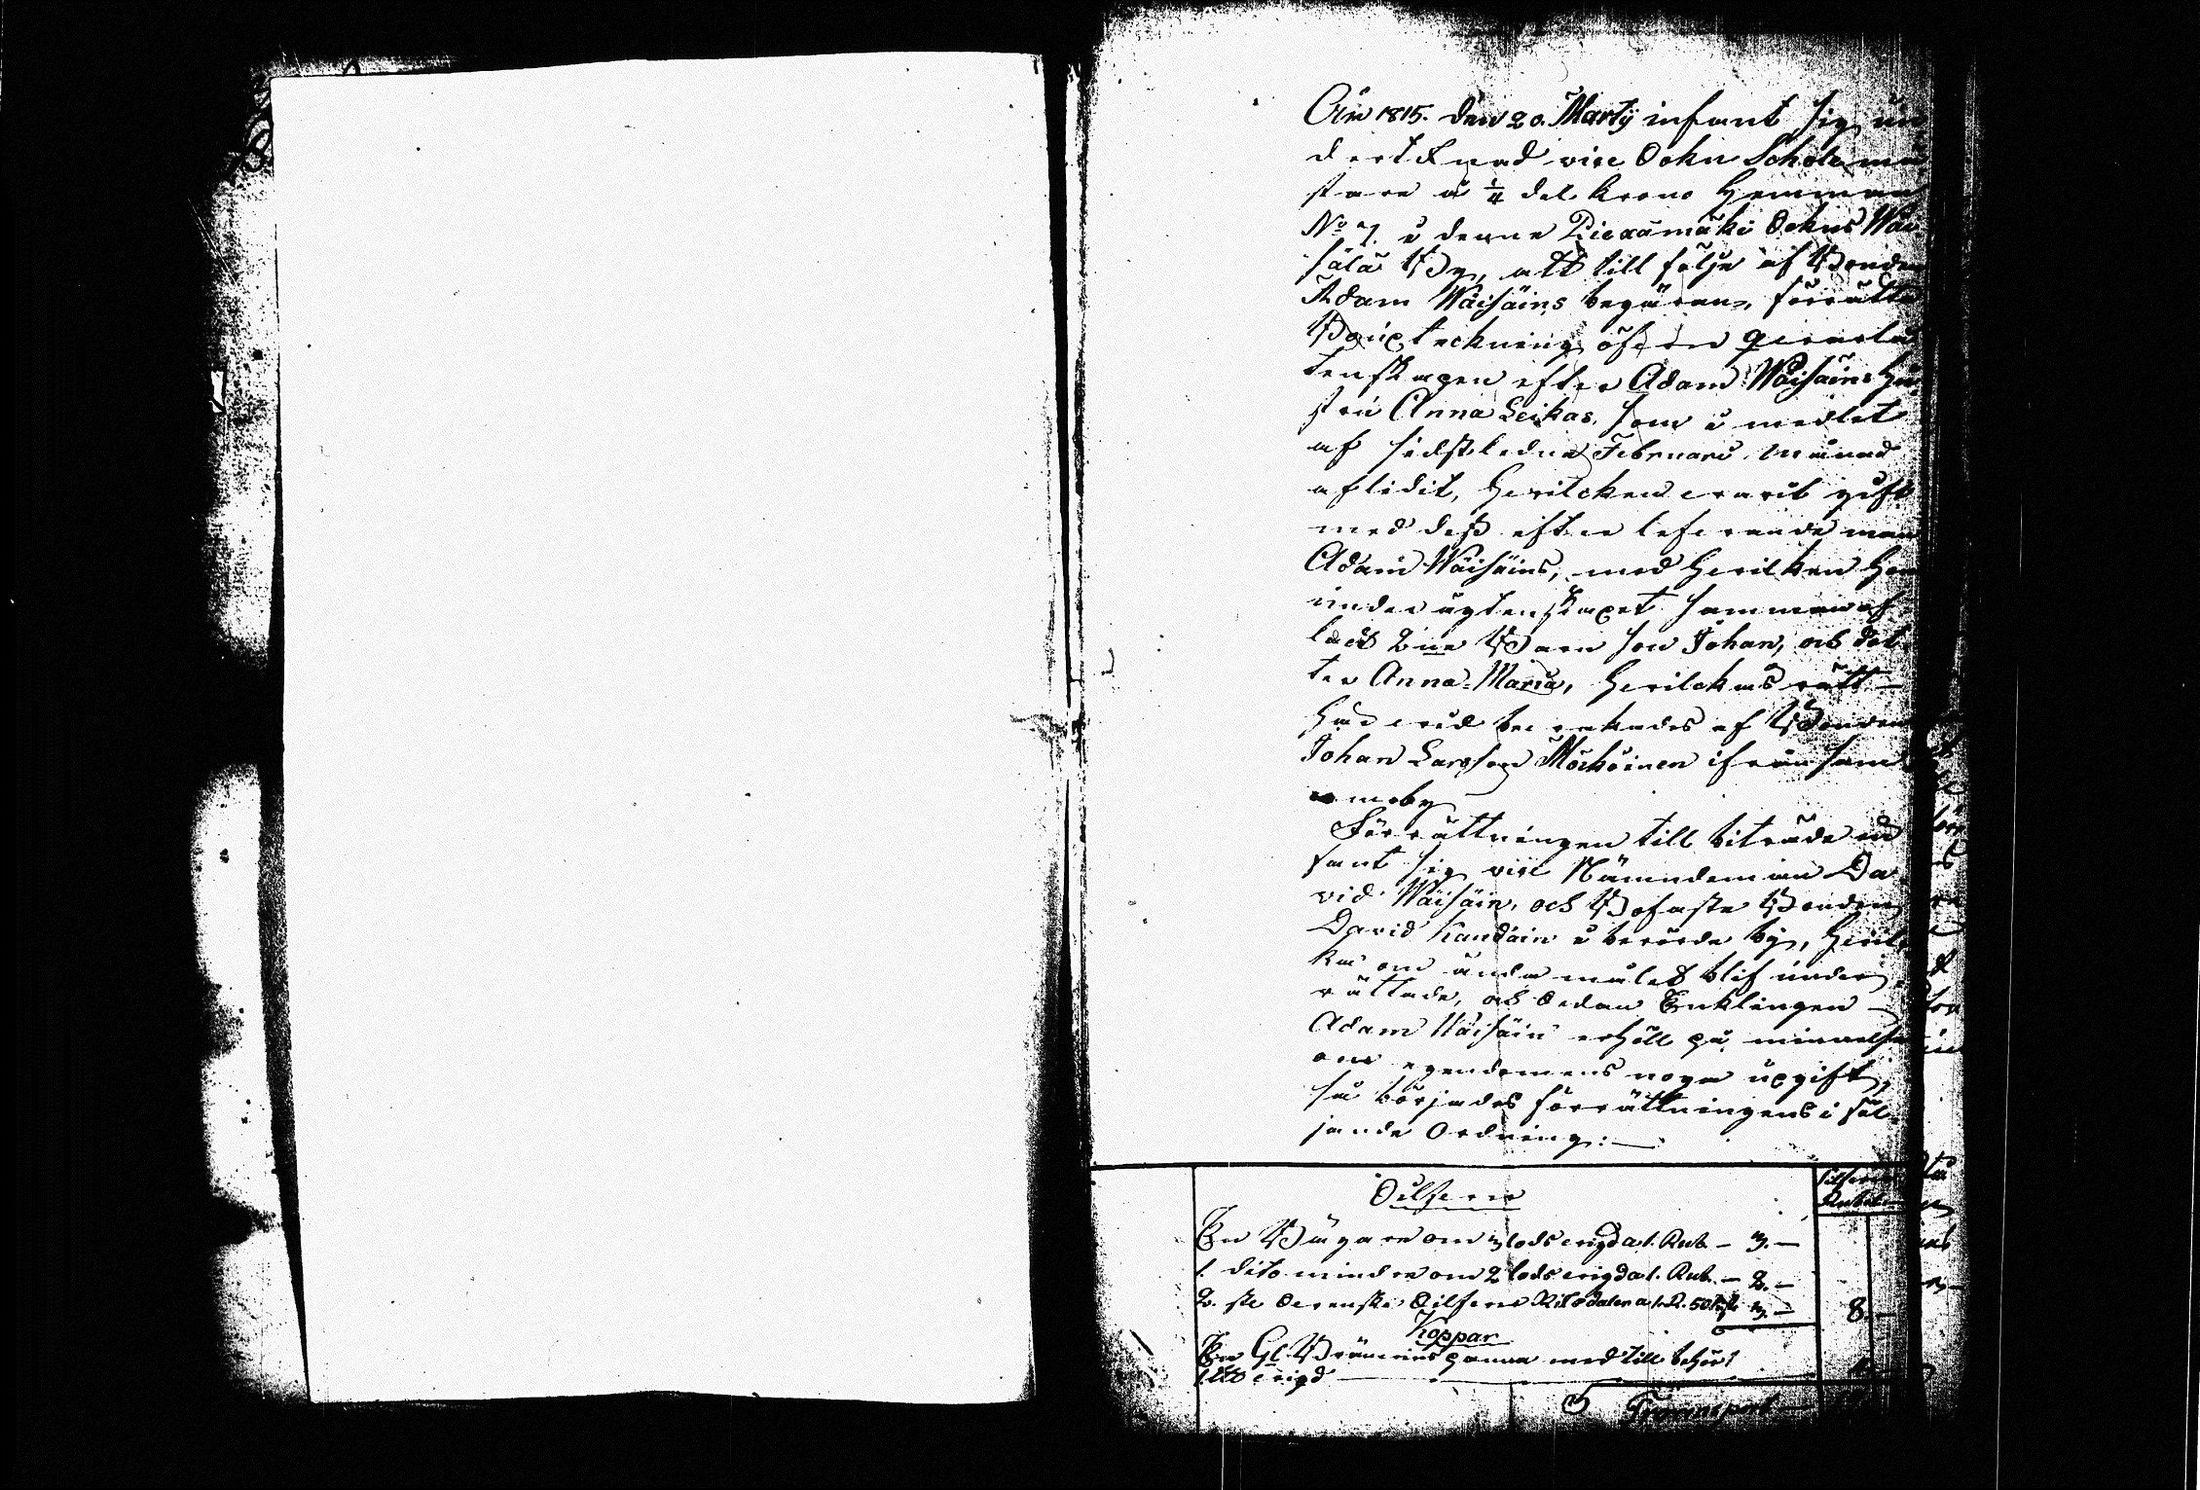 År 1815. den 20. Martij infant sig un
derteknad vice Sokn Scholemä
stare å 1/4 del krono Hemman
No 7. i denne Piexämäki Sokns Wäi
sälä By, att till följe af Bonden
Adam Wäisäins begäran, förrätta
Bouptekning öfver qvarlå
tenskapen efter Adam Wäisäins Hu
stru Anna Leikas, som i medlet
af sidstledne Februari månad
aflidit, Hvilcken varit gift
med dess efterlefvande man
Adam Wäisäins, med Hvilken Hon
under ägtenskapet sammanaf
lat 2ne Barn son Johan, och dot
ter Anna-Maria, Hvilckas rätt
Johan Larsson Möiköinen ifrån sam
moby
Förrättningen till biträde in
fant sig vice Nämndeman Da
vid Wäisäin, och Bofaste Bonden
David Kandain i berörde by, Hvil
ka om ändamålet blif under
rättade, och sedan Enklingen
Adam Wäisäin erhöll påminnelse
om egendomens noga upgift,
så börjades förrättningens i föl
jande Ordning:
Silfver
Silfver
Rubel
En Bägare om 3 lods vigd a 1. Rub. - 3. -
1. dito mindre om 2 lods vigd a 1. Rub. - 2. -
2. st. Svenske Silfver Riksdaler a 1. R. 50 3. - 8. -
Koppar
En Gl. Bränvins panna med tillbehör 1
vigd
Transport